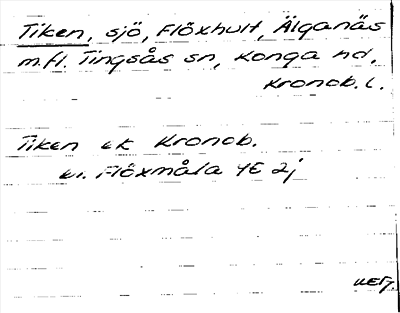 Tiken, sjö, Flöxhult, Älganäs
m.fl. Tingsås sn, Konga hd,
Kronob. l.
Tiken ek Kronob.
Flöxmåla 4E 2j